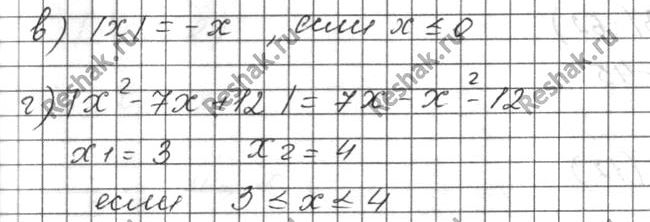 в) |x| = -x , если x ≤ 0
г) |x² - 7x + 12| = 7x - x² - 12
x1 = 3 x2 = 4
если 3 ≤ x ≤ 4
Reshak.ru Reshak.ru Reshak.ru Reshak.ru